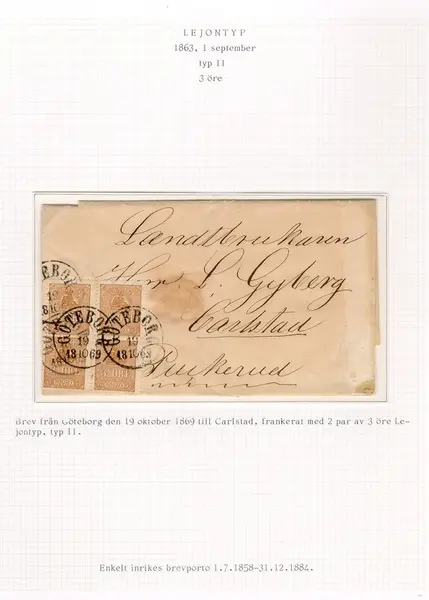 LEJONTYP
1863, 1 september
typ II
3 öre
Landtbrukaren
Hrr L. Gyberg
Carlstad
GÖTEBORG
19
18 10 69
GÖTEBORG
19
18 10 69
Brev från Göteborg den 19 oktober 1869 till Carlstad, frankerat med 2 par av 3 öre Le-
jontyp, typ II.
Enkelt inrikes brevporto 1.7.1858-31.12.1884.